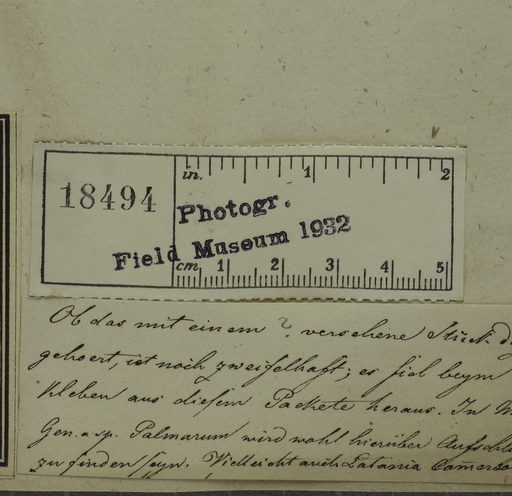 in. 1 2
18494
Photogr.
Field Museum 1932
cm 1 2 3 4 5
Ob das mit einem ?. versehene Stück
gehoert, ist noch zweifelhaft; es fiel beym
Kleben aus diesem Packete heraus. In
Gen. a sp. Palmarum wird wohl hierüber
zu finden seyn. Vielleicht auch Latania